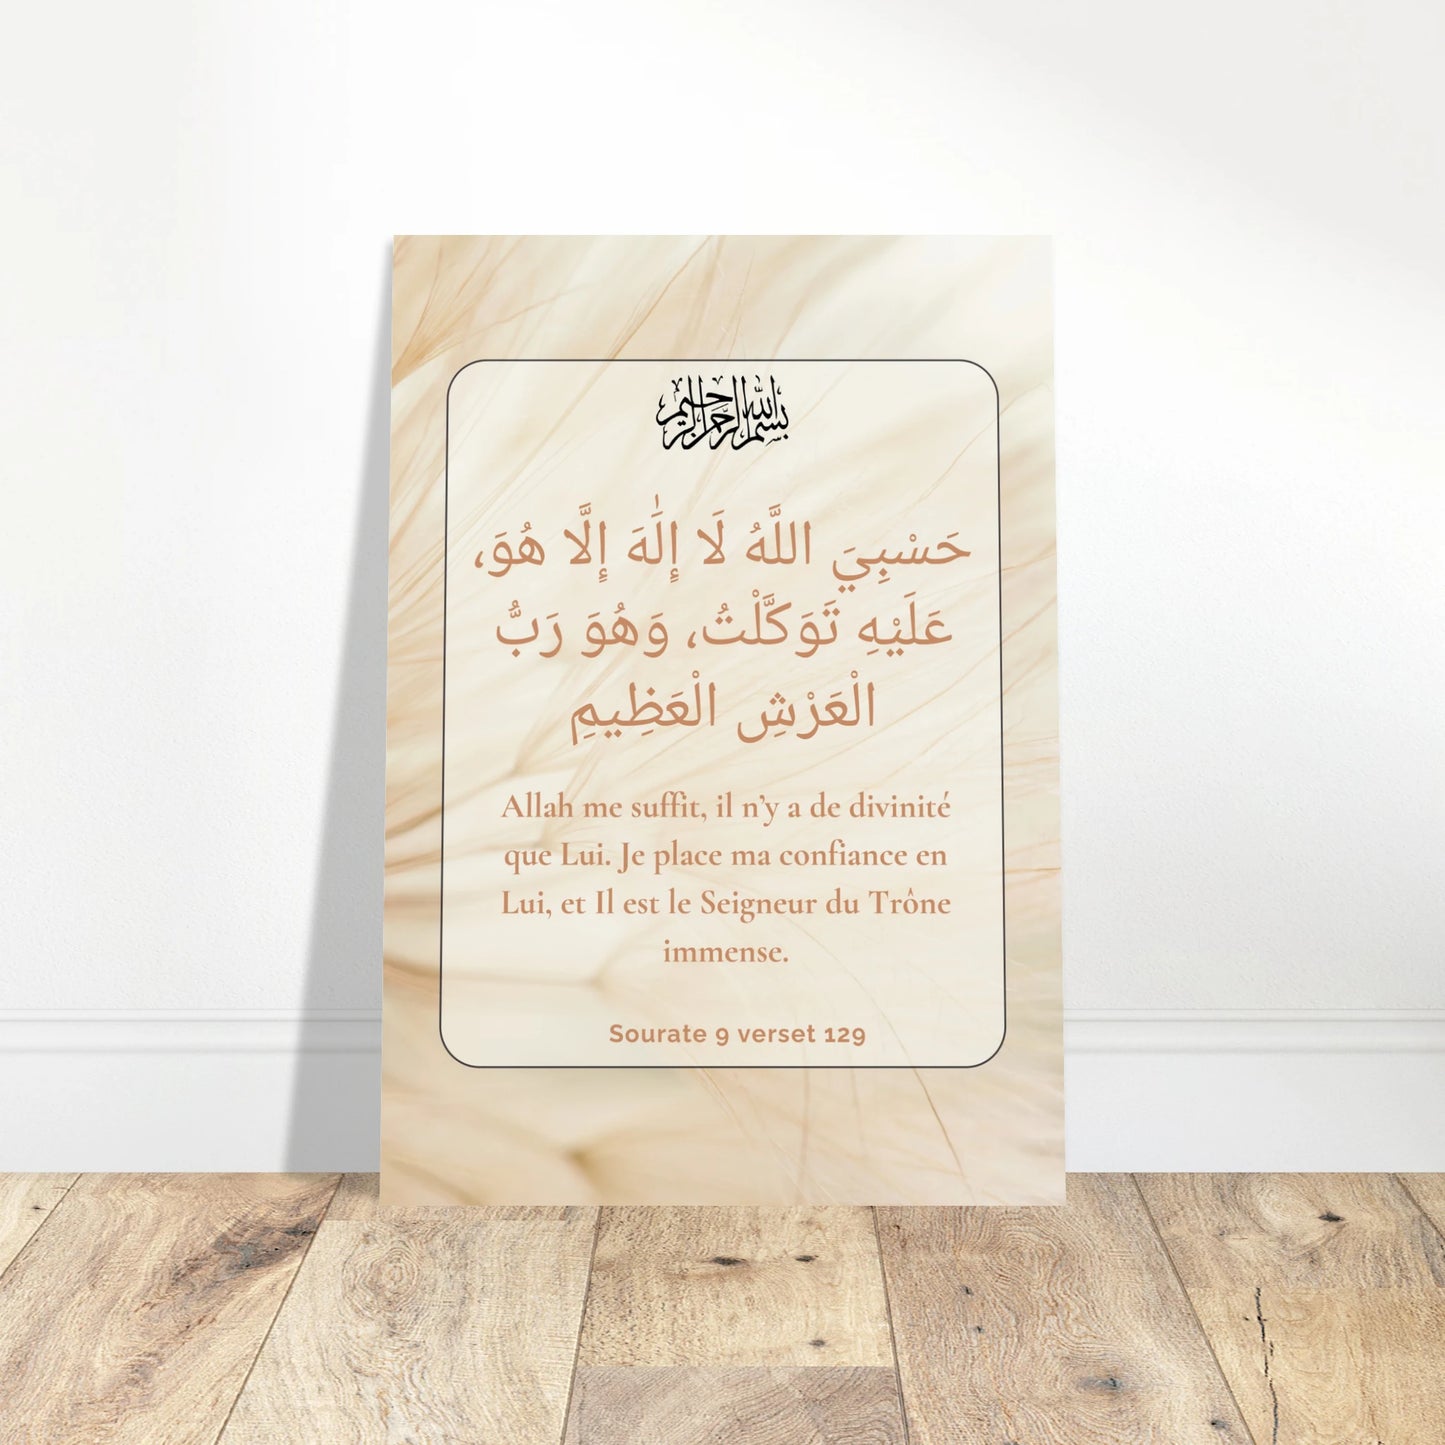 بسم الله الرحمن الرحيم
حَسْبِيَ اللَّهُ لَا إِلَٰهَ إِلَّا هُوَ،
عَلَيْهِ تَوَكَّلْتُ، وَهُوَ رَبُّ
الْعَرْشِ الْعَظِيمِ
Allah me suffit, il n’y a de divinité
que Lui. Je place ma confiance en
Lui, et Il est le Seigneur du Trône
immense.
Sourate 9 verset 129